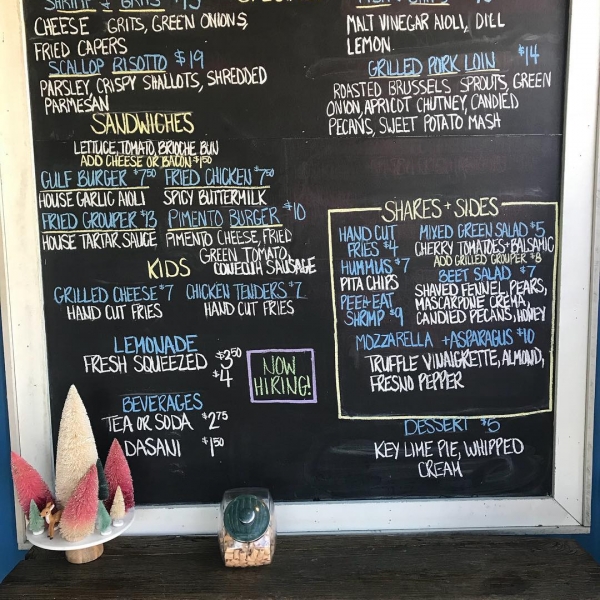 SHRIMP & GRITS
CHEESE GRITS, GREEN ONIONS,
FRIED CAPERS
SCALLOP RISOTTO $19
PARSLEY, CRISPY SHALLOTS, SHREDDED
PARMESAN
MALT VINEGAR AIOLI, DILL
LEMON
GRILLED PORK LOIN $14
ROASTED BRUSSELS SPROUTS, GREEN
ONION, APRICOT CHUTNEY, CANDIED
PECANS, SWEET POTATO MASH
SANDWICHES
LETTUCE, TOMATO, BRIOCHE BUN
ADD CHEESE OR BACON $1.50
GULF BURGER $7.50
HOUSE GARLIC AIOLI
FRIED CHICKEN $7.50
SPICY BUTTERMILK
FRIED GROUPER $13
HOUSE TARTAR SAUCE
PIMENTO BURGER $10
PIMENTO CHEESE, FRIED
GREEN TOMATO,
CONECUH SAUSAGE
KIDS
GRILLED CHEESE $7
HAND CUT FRIES
CHICKEN TENDERS $7
HAND CUT FRIES
LEMONADE
FRESH SQUEEZED $3.50
$4
BEVERAGES
TEA OR SODA $2.75
DASANI $1.50
NOW
HIRING!
SHARES + SIDES
HAND CUT
FRIES $4
HUMMUS $7
PITA CHIPS
PEEL+EAT
SHRIMP $9
MIXED GREEN SALAD $5
CHERRY TOMATOES+BALSAMIC
ADD GRILLED GROUPER $8
BEET SALAD $7
SHAVED FENNEL, PEARS,
MASCARPONE CREMA,
CANDIED PECANS, HONEY
MOZZARELLA + ASPARAGUS $10
TRUFFLE VINAIGRETTE, ALMOND,
FRESNO PEPPER
DESSERT $5
KEY LIME PIE, WHIPPED
CREAM